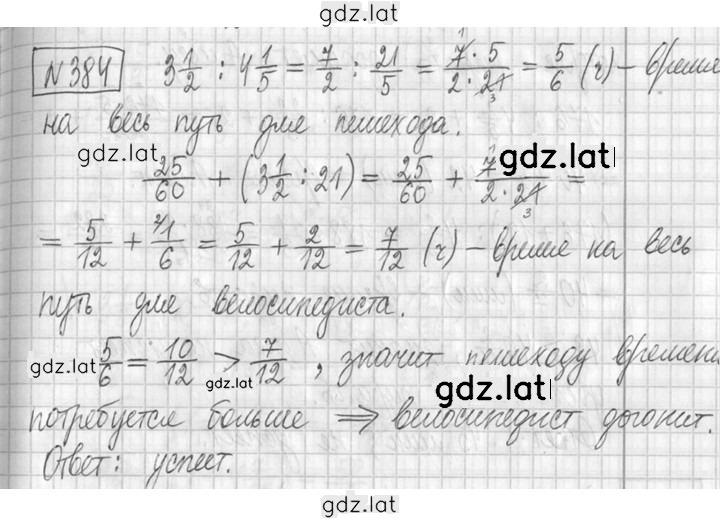 gdz.lat
N384 3 1/2 : 4 1/5 = 7/2 : 21/5 = 7·5/2·21 = 5/6 (ч) – время
на весь путь для пешехода.
gdz.lat
gdz.lat
25/60 + (3 1/2 : 21) = 25/60 + 7/2·21 =
= 5/12 + 1/6 = 5/12 + 2/12 = 7/12 (ч) – время на весь
путь для велосипедиста.
gdz.lat 5/6 = 10/12 > 7/12, значит пешеходу времени
gdz.lat
gdz.lat
потребуется больше ⇒ велосипедист догонит.
Ответ: успеет.
gdz.lat